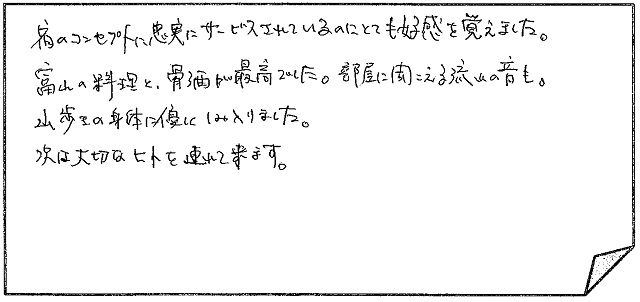 宿のコンセプトに忠実にサービスされているのにとても好感を覚えました。
富山の料理と、骨酒が最高でした。部屋に聞こえる流水の音も。
山歩きの身体に優しくしみ入りました。
次は大切なヒトを連れて来ます。